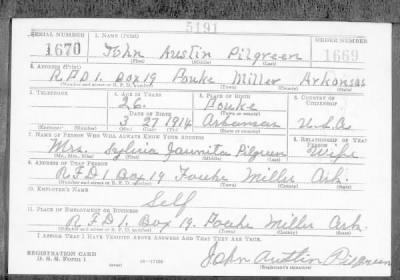 5191
SERIAL NUMBER 1. NAME (Print) ORDER NUMBER
1670 John Austin Pilgreen 1669
(First) (Middle) (Last)
2. ADDRESS (Print)
RFD 1. Box 19 Fouke Miller Arkansas
(Number and street or R. F. D. number) (Town) (County) (State)
3. TELEPHONE 4. AGE IN YEARS 5. PLACE OF BIRTH 6. COUNTRY OF CITIZENSHIP
26. Fouke
DATE OF BIRTH (Town or county)
3 27 1914 Arkansas U.S.A
(Exchange) (Number) (Mo.) (Day) (Yr.) (State or country)
7. NAME OF PERSON WHO WILL ALWAYS KNOW YOUR ADDRESS 8. RELATIONSHIP OF THAT PERSON
Mrs. Sylvia Jaunita Pilgreen Wife
(Mr., Mrs., Miss) (First) (Middle) (Last)
9. ADDRESS OF THAT PERSON
RFD 1 Box 19 Fouke Miller Ark.
(Number and street or R. F. D. number) (Town) (County) (State)
10. EMPLOYER'S NAME
Self
11. PLACE OF EMPLOYMENT OR BUSINESS
RFD 1. Box 19. Fouke Miller Ark.
(Number and street or R. F. D. number) (Town) (County) (State)
I AFFIRM THAT I HAVE VERIFIED ABOVE ANSWERS AND THAT THEY ARE TRUE.
REGISTRATION CARD
D. S. S. Form 1 16—17105 John Austin Pilgreen
(Registrant's signature)